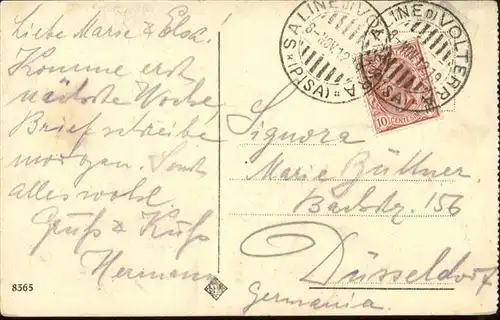 Liebe Marie & Elsa!
Komme erst
nächste Woche,
Brief schreibe
morgen. Sonst
alles wohl.
Gruß & Kuß
Hermann
8365
SALINE DI VOLTERRA
(PISA)
8-NOV.12
SALINE DI VOLTERRA
10 CENT
Signora
Marie Büttner
156
Düsseldorf
Germania.